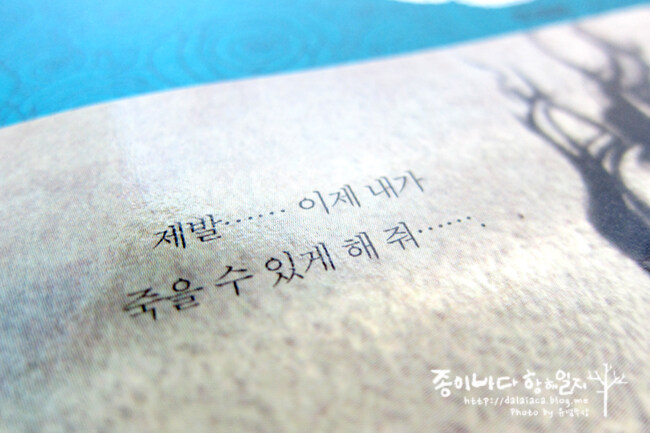 제발…… 이제 내가
죽을 수 있게 해 줘…….
종이바다 항해일지
http://dalaiaca.blog.me
Photo by